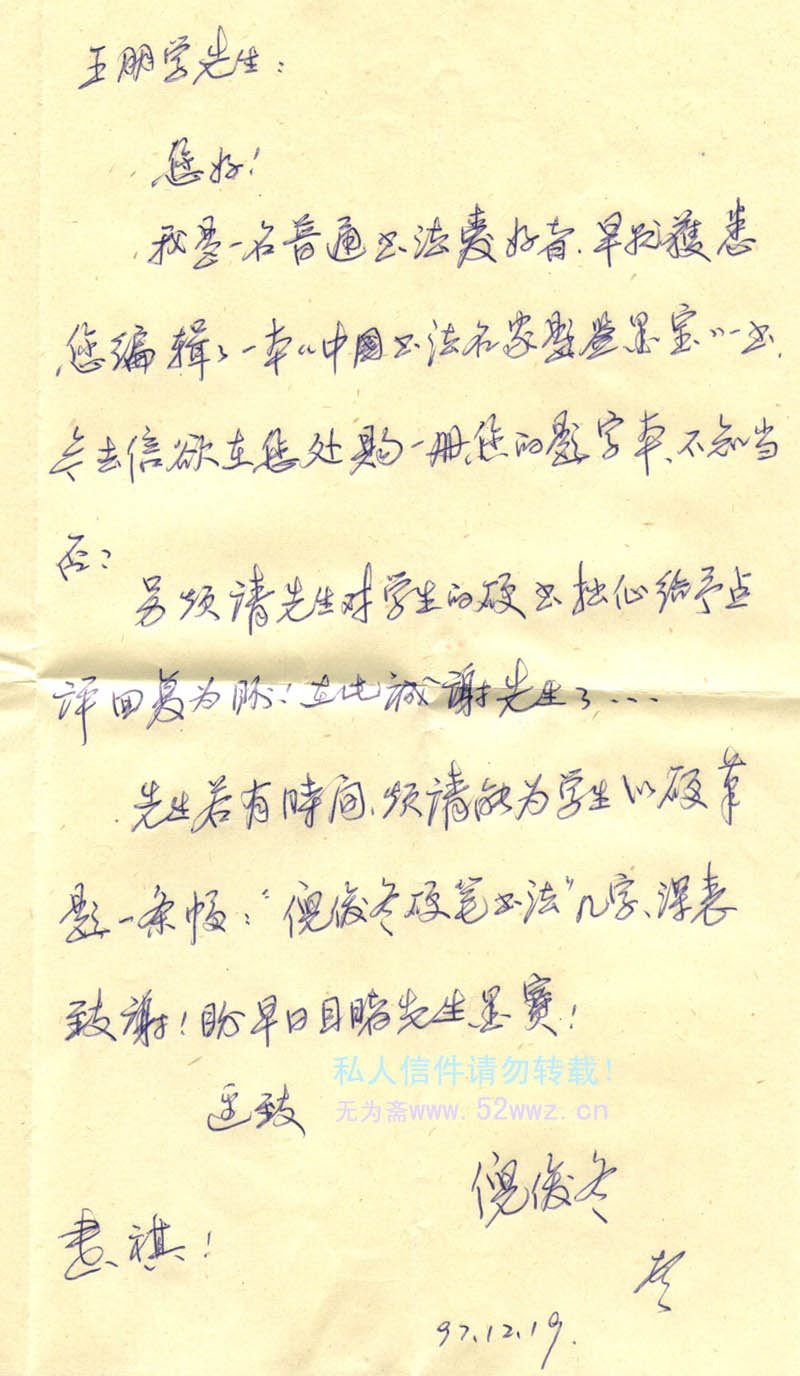 王朋学先生：
您好！
我是一名普通书法爱好者，早就獲悉
您编辑了一本《中國书法名家题签墨宝》一书，
今去信欲在您处购一册您的题字本、不知当
否？
另烦请先生对学生的硬书拙作给予点
评回复为盼！在此诚谢先生了...
先生若有時间、烦请能为学生以硬笔
题一条幅：“倪俊冬硬笔书法”几字、深表
致谢！盼早日目睹先生墨寶！
至致
倪俊冬
書祺！
97.12.19.
私人信件请勿转载！
无为斋www.52wwz.cn